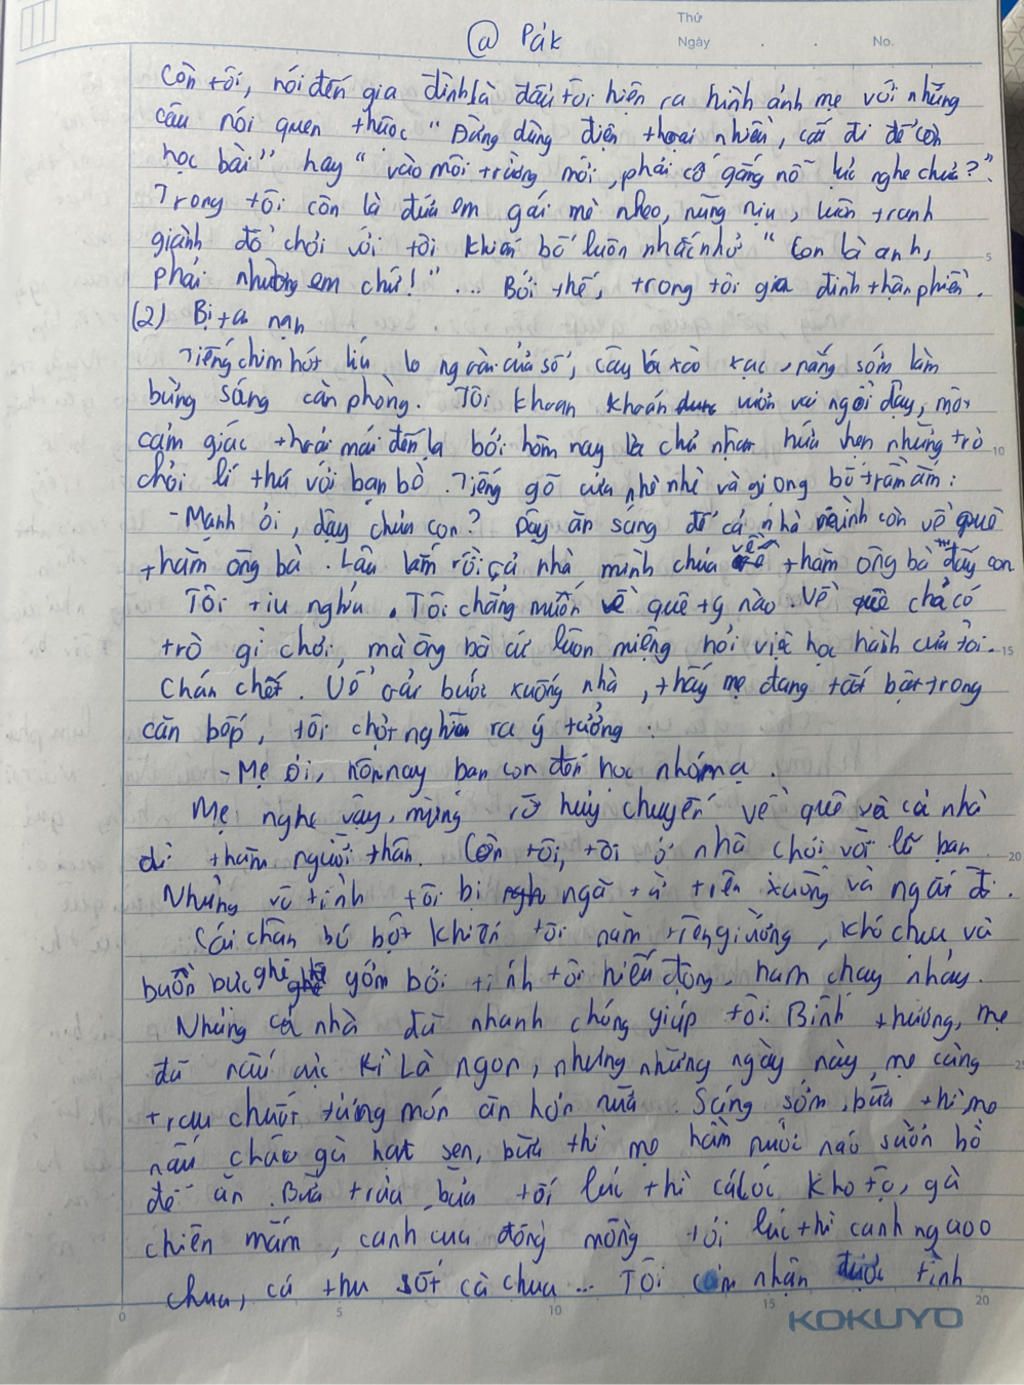 Thứ
Ngày . . No.
@ Pák
Còn tôi, nói đến gia đình là đầu tôi hiện ra hình ảnh mẹ với những
câu nói quen thuộc "Đừng dùng điện thoại nhiều, cất đi để còn
học bài" hay "vào môi trường mới, phải cố gắng nỗ lực nghe chưa?".
Trong tôi còn là đứa em gái mè nheo, nũng nịu, luôn tranh
giành đồ chơi với tôi khiến bố luôn nhắc nhở "Con là anh,
5
phải nhường em chứ!" ... Bởi thế, trong tôi gia đình thật phiền.
(2) Bị tai nạn
Tiếng chim hót líu lo ngoài cửa sổ, cây lá xào xạc, nắng sớm làm
bừng sáng căn phòng. Tôi khoan khoái vươn vai ngồi dậy, một
cảm giác thoải mái đến lạ bởi hôm nay là chủ nhật hứa hẹn những trò
10
chơi lí thú với bạn bè. Tiếng gõ cửa nhè nhẹ và giọng bố trầm ấm:
- Mạnh ơi, dậy chưa con? Dậy ăn sáng để cả nhà mình còn về quê
thăm ông bà. Lâu lắm rồi cả nhà mình chưa về thăm ông bà đấy con
Tôi tiu nghỉu. Tôi chẳng muốn về quê tý nào. Về quê chả có
trò gì chơi, mà ông bà cứ luôn miệng hỏi việc học hành của tôi.
15
Chán chết. Uể oải bước xuống nhà, thấy mẹ đang tất bật trong
căn bếp, tôi chợt nghĩ ra ý tưởng:
- Mẹ ơi, hôm nay bạn con đến học nhóm ạ.
Mẹ nghe vậy, mừng rỡ hủy chuyến về quê và cả nhà
đi thăm người thân. Còn tôi, tôi ở nhà chơi với lũ bạn
20
Nhưng vô tình tôi bị ngã từ trên xuống và ngất đi.
Cái chân bó bột khiến tôi nằm trên giường, khó chịu và
buồn bực ghê gớm bởi tính tôi hiếu động, ham chạy nhảy.
Nhưng cả nhà đã nhanh chóng giúp tôi. Bình thường, mẹ
đã nấu cực kì là ngon, nhưng những ngày này, mẹ càng
25
trau chuốt từng món ăn hơn nữa. Sáng sớm, bữa thì mẹ
nấu cháo gà hạt sen, bữa thì mẹ hầm nước sườn bò
để ăn. Bữa trưa, bữa tối lúc thì cá lóc kho tộ, gà
chiên mắm, canh cua đồng mồng tơi lúc thì canh ngao
chua, cá thu sốt cà chua ... Tôi cảm nhận được tình
0 5 10 15 20
KOKUYO